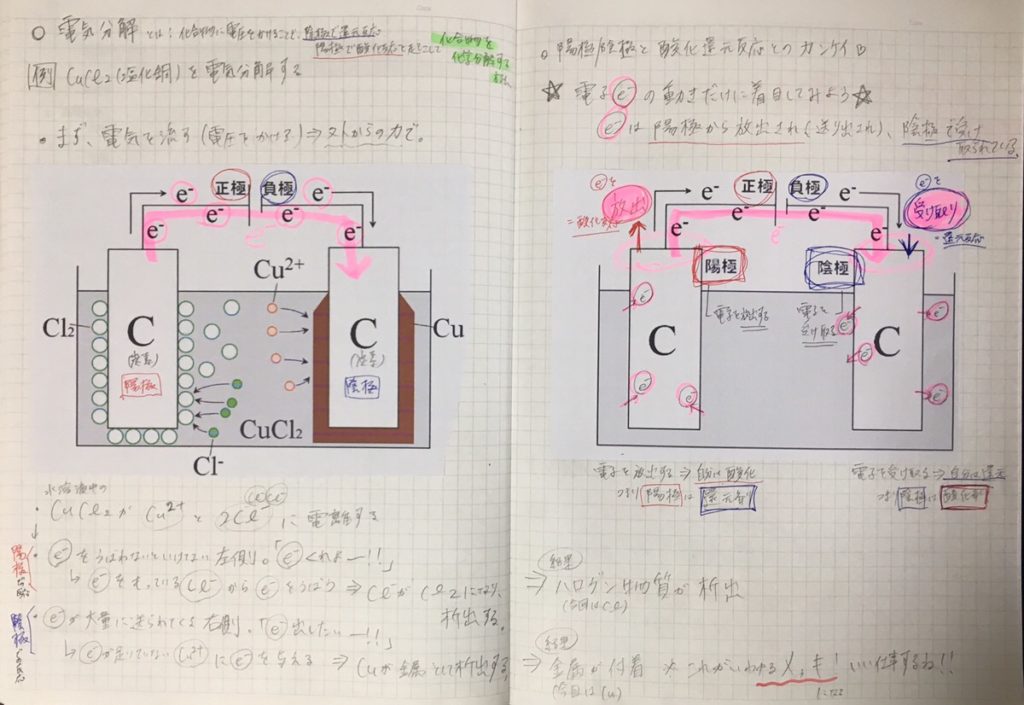 ○ 電気分解 とは: 化合物に電圧をかけることで、陰極で還元反応
陽極で酸化反応をおこして
化合物を
化学分解する
方法
例 CuCl2(塩化銅)を電気分解する
・まず、電気を流す(電圧をかける)⇒外からの力で。
e- e- 正極 負極 e- e-
e- e- e- e-
Cu2+
Cl2
C
(炭素)
陽極
C
(炭素)
陰極
Cu
CuCl2
Cl-
水溶液中の
CuCl2が Cu2+ と 2Cl- に電離する
陽極
・e-をうばわないといけない左側。「e-くれよー!!」
↳ e-をもっている Cl- から e- をうばう ⇒ Cl-が Cl2になり、
析出する。
陰極
・e-が大量に送られてくる右側。「e-出したいー!!」
↳ e-が足りていない Cu2+ に e- を与える ⇒ Cuが金属として析出する。
○陽極/陰極と酸化還元反応とのカンケイ
☆ 電子 e- の動きだけに着目してみよう☆
e- は 陽極から放出され(送り出され)、陰極で受け
取られている。
e-を
放出
=酸化反応
e- 正極 負極 e-
e- e- e- e- e-
e-を
受け取り
=還元反応
陽極
陰極
電子を放出する
電子を
受け取る
C
C
e- e- e-
e- e- e- e-
電子を放出する ⇒ 自分は酸化
つまり 陽極 は 還元剤
電子を受け取る ⇒ 自分は還元
つまり 陰極 は 酸化剤
結果
⇒ ハロゲン物質が析出
(今回はCl)
結果
⇒ 金属が付着 ※これがいわゆるメッキ! いい仕事するね!!
(今回はCu)